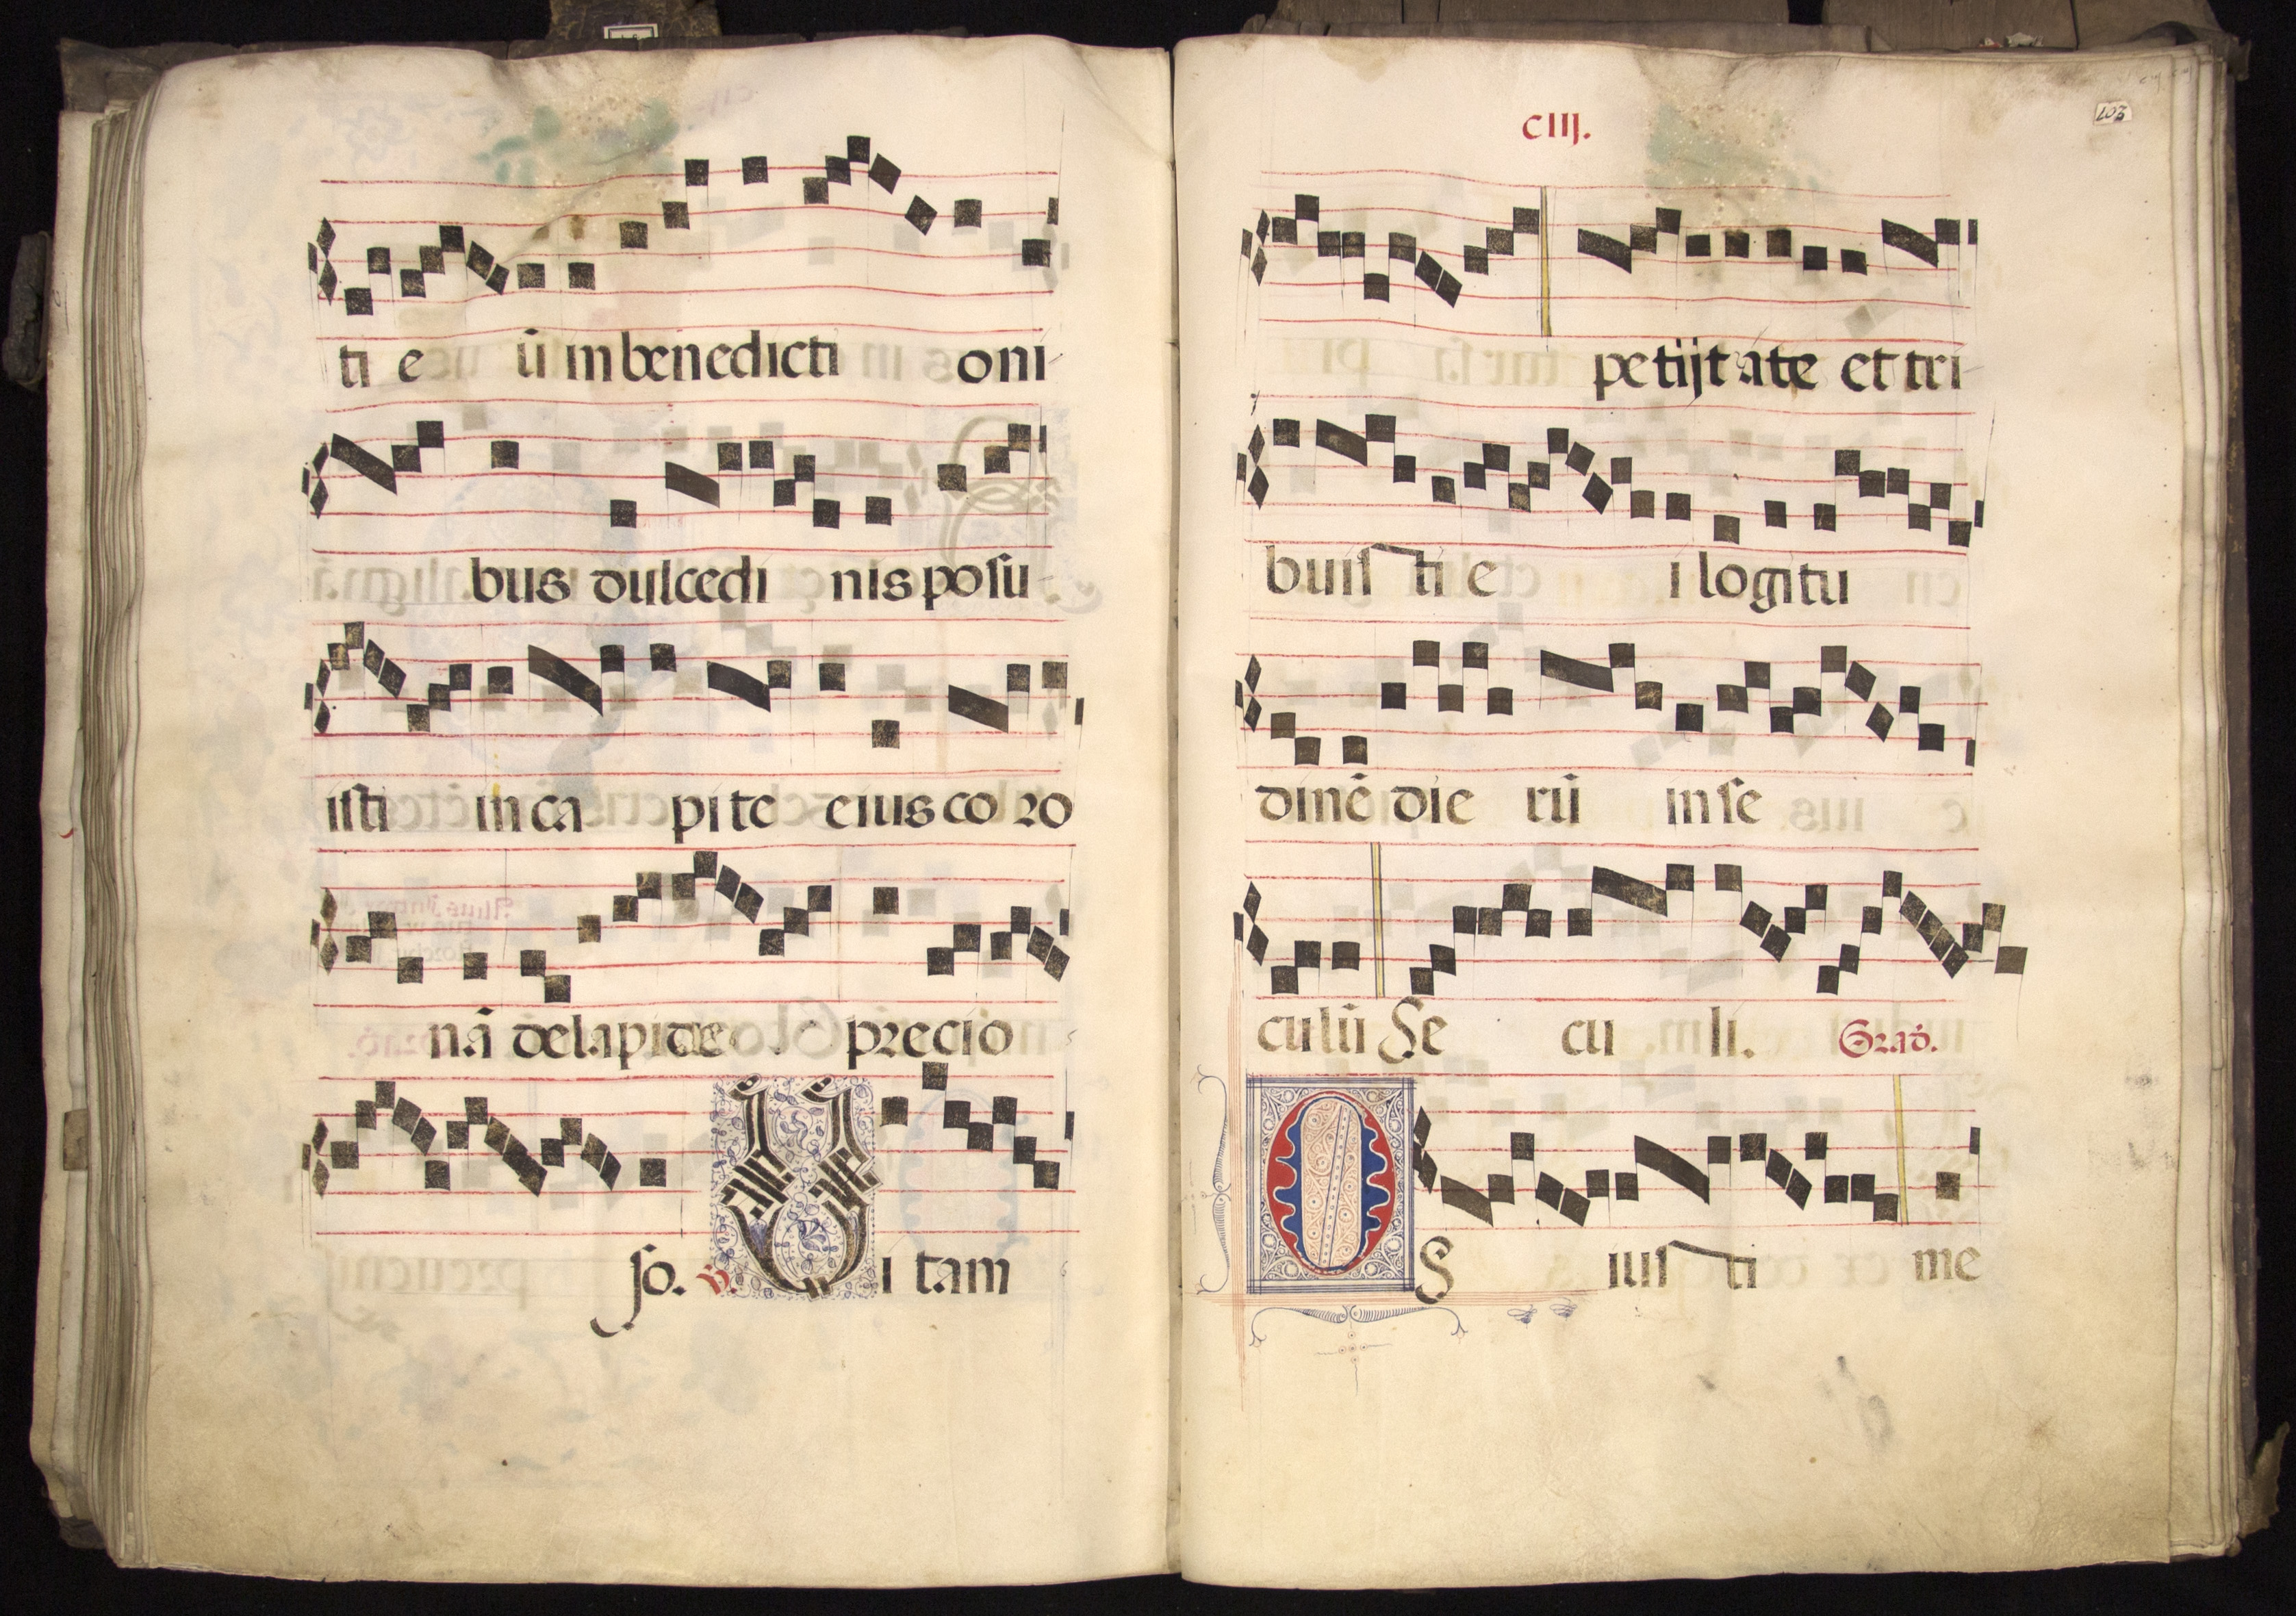 ti e ū in benedicti oni-
bus dulcedi nis posu-
isti in ca pi te eius co ro
nā de lapide precio
so. ℣. Vi tam
CIIJ.
103
petijt a te et tri-
buis ti e i logitu
dinē die rū in se
culū Se cu li. Grad.
OS ius ti me